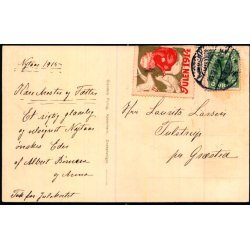 Nytaar 1915
Kære Moster og Fætter
Et rigtig glædelig
og velsignet Nytaar
ønskes Eder
af Albert
og Anna
Tak for Julekortet
JULEN 1914
Hr. Laurits Larsen
Tulstrup
pr Græsted